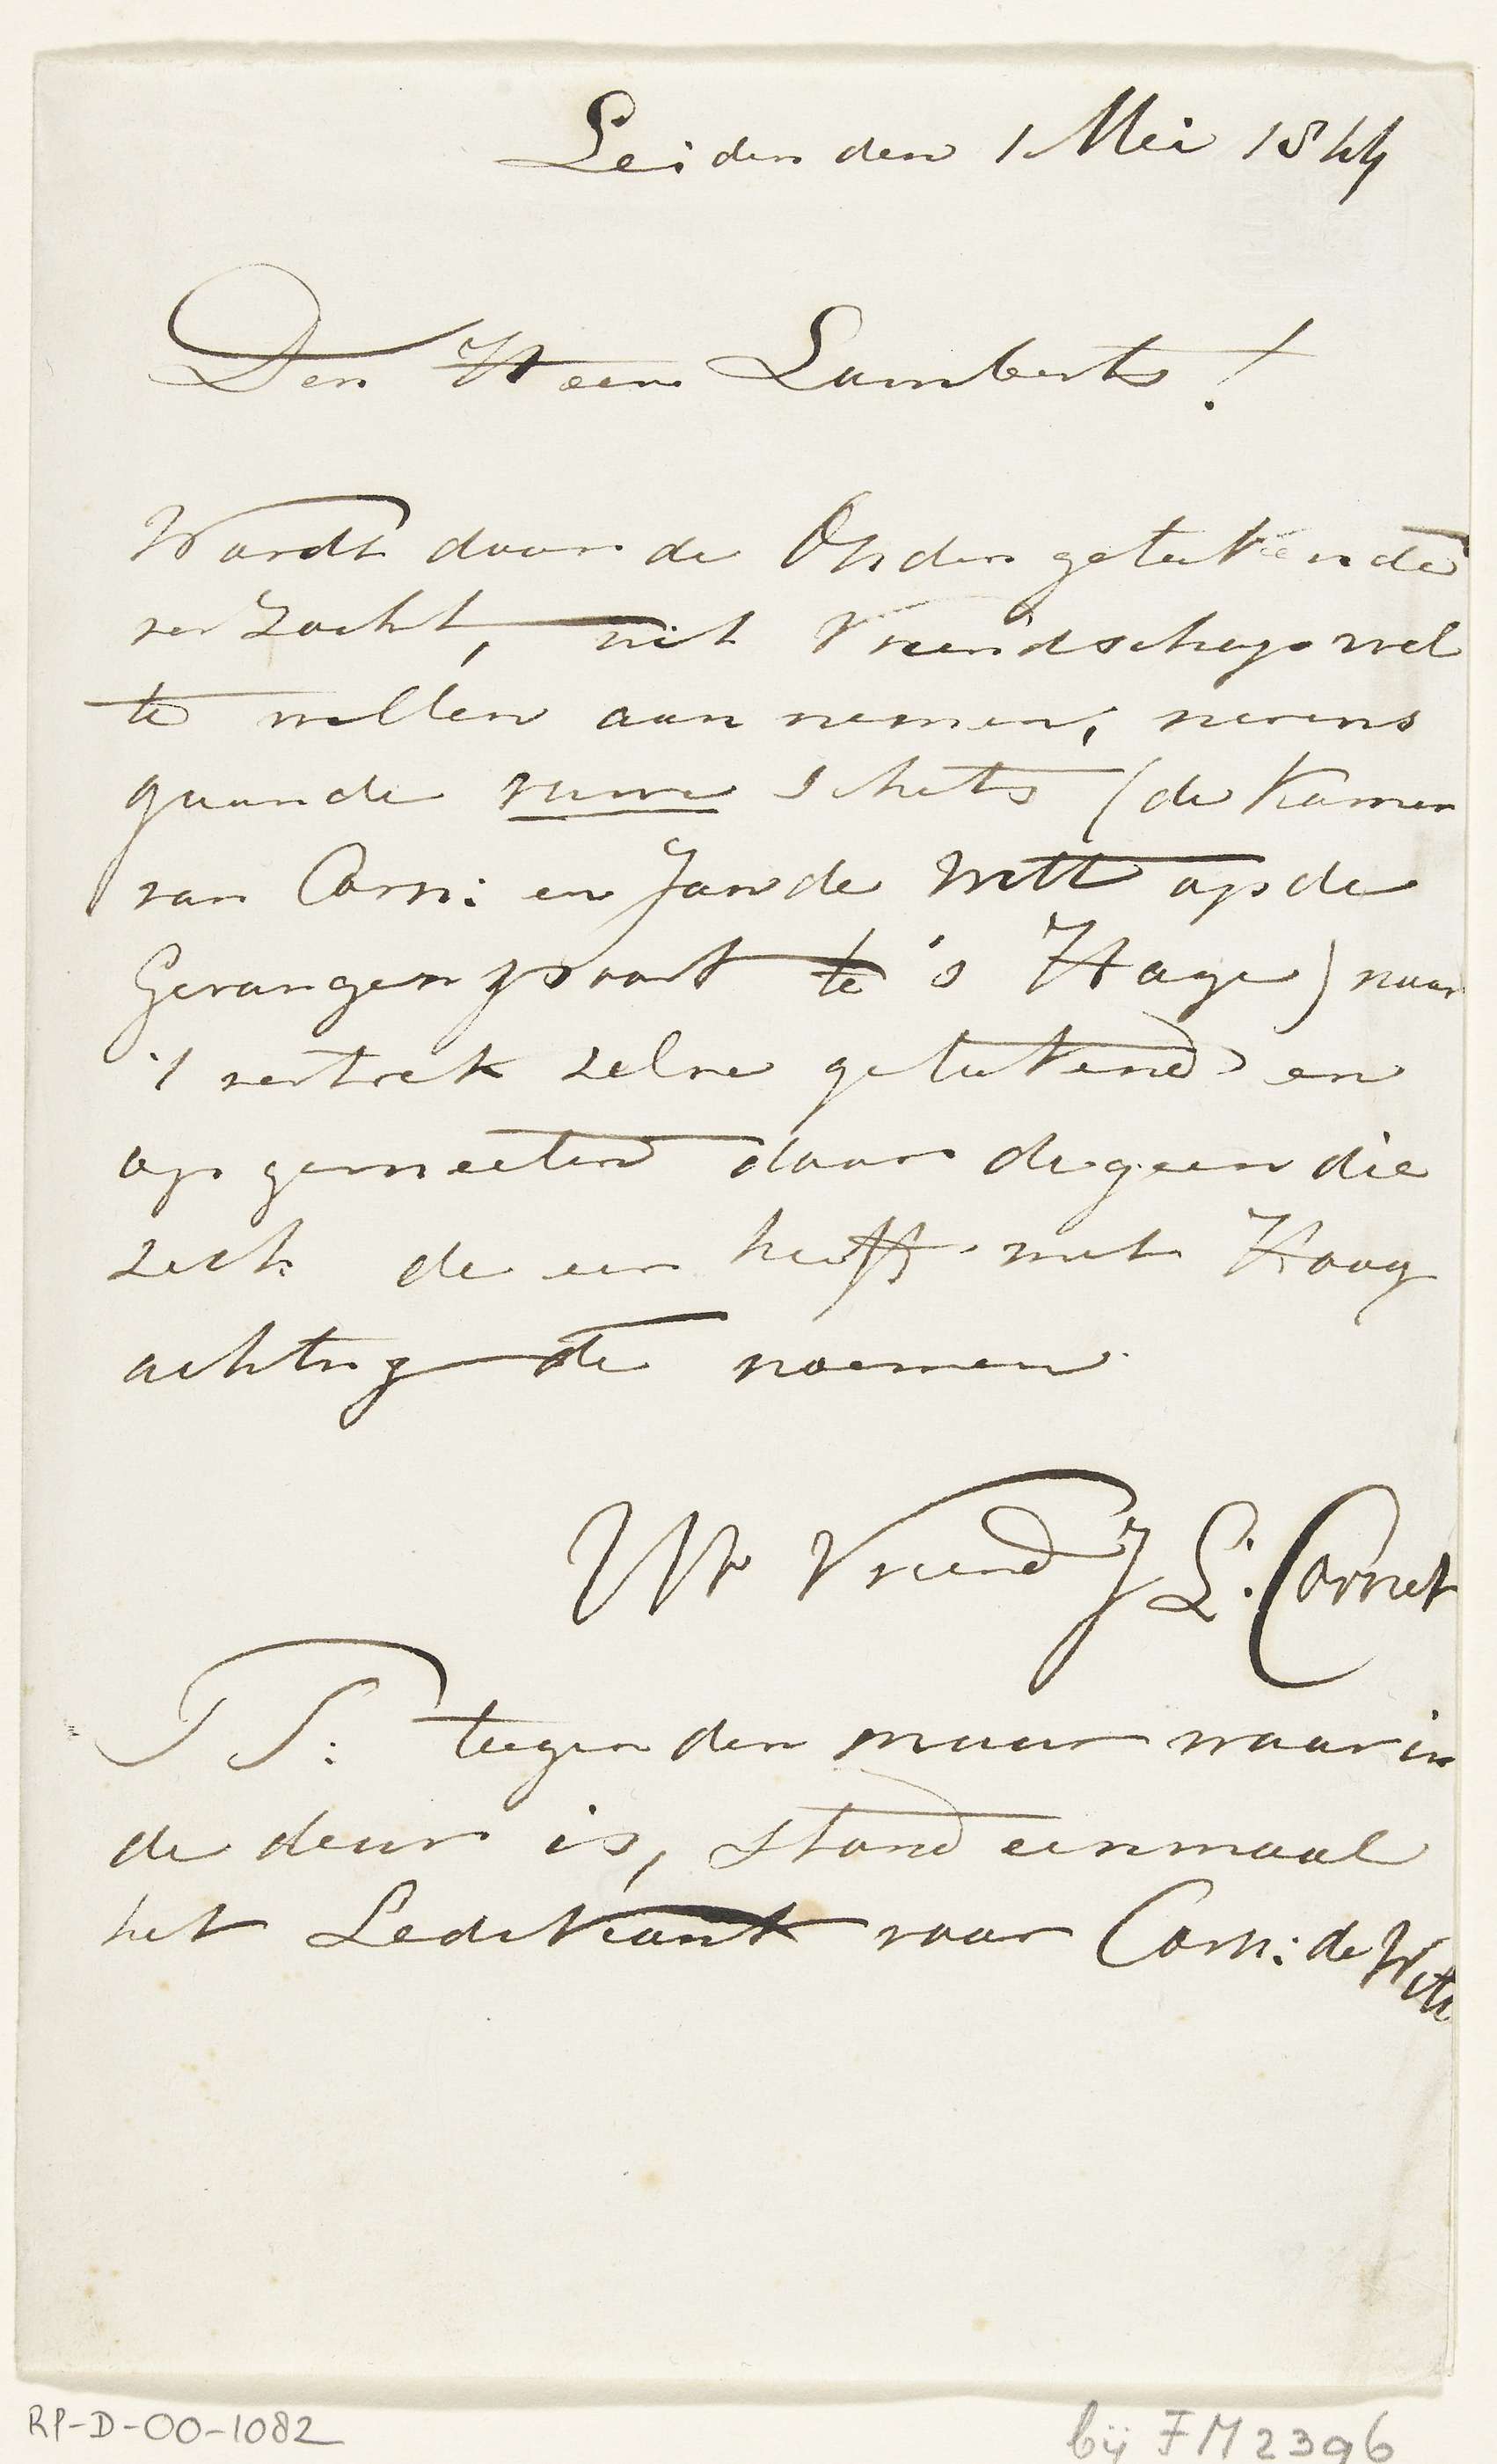 Leiden den 1 Mei 1844
Den Heer Lamberts!
Wordt door de Ondergeteekende
verzocht, uit Vriendschap wel
te willen aannemen, nevens
gaande ruwe schets (de Kamer
van Corn: en Jan de Witt op de
Gevangenpoort te 's Hage) naar
't vertrek zelve geteekend en
opgemeeten door degeen die
zich de eer heeft met Hoog
achting te noemen
UW Vriend J L. Cornet
P S: teegen den muur waarin
de deur is, stond eenmaal
het Ledekant voor Corn: de Witt
RP-D-00-1082
bij FM 2396